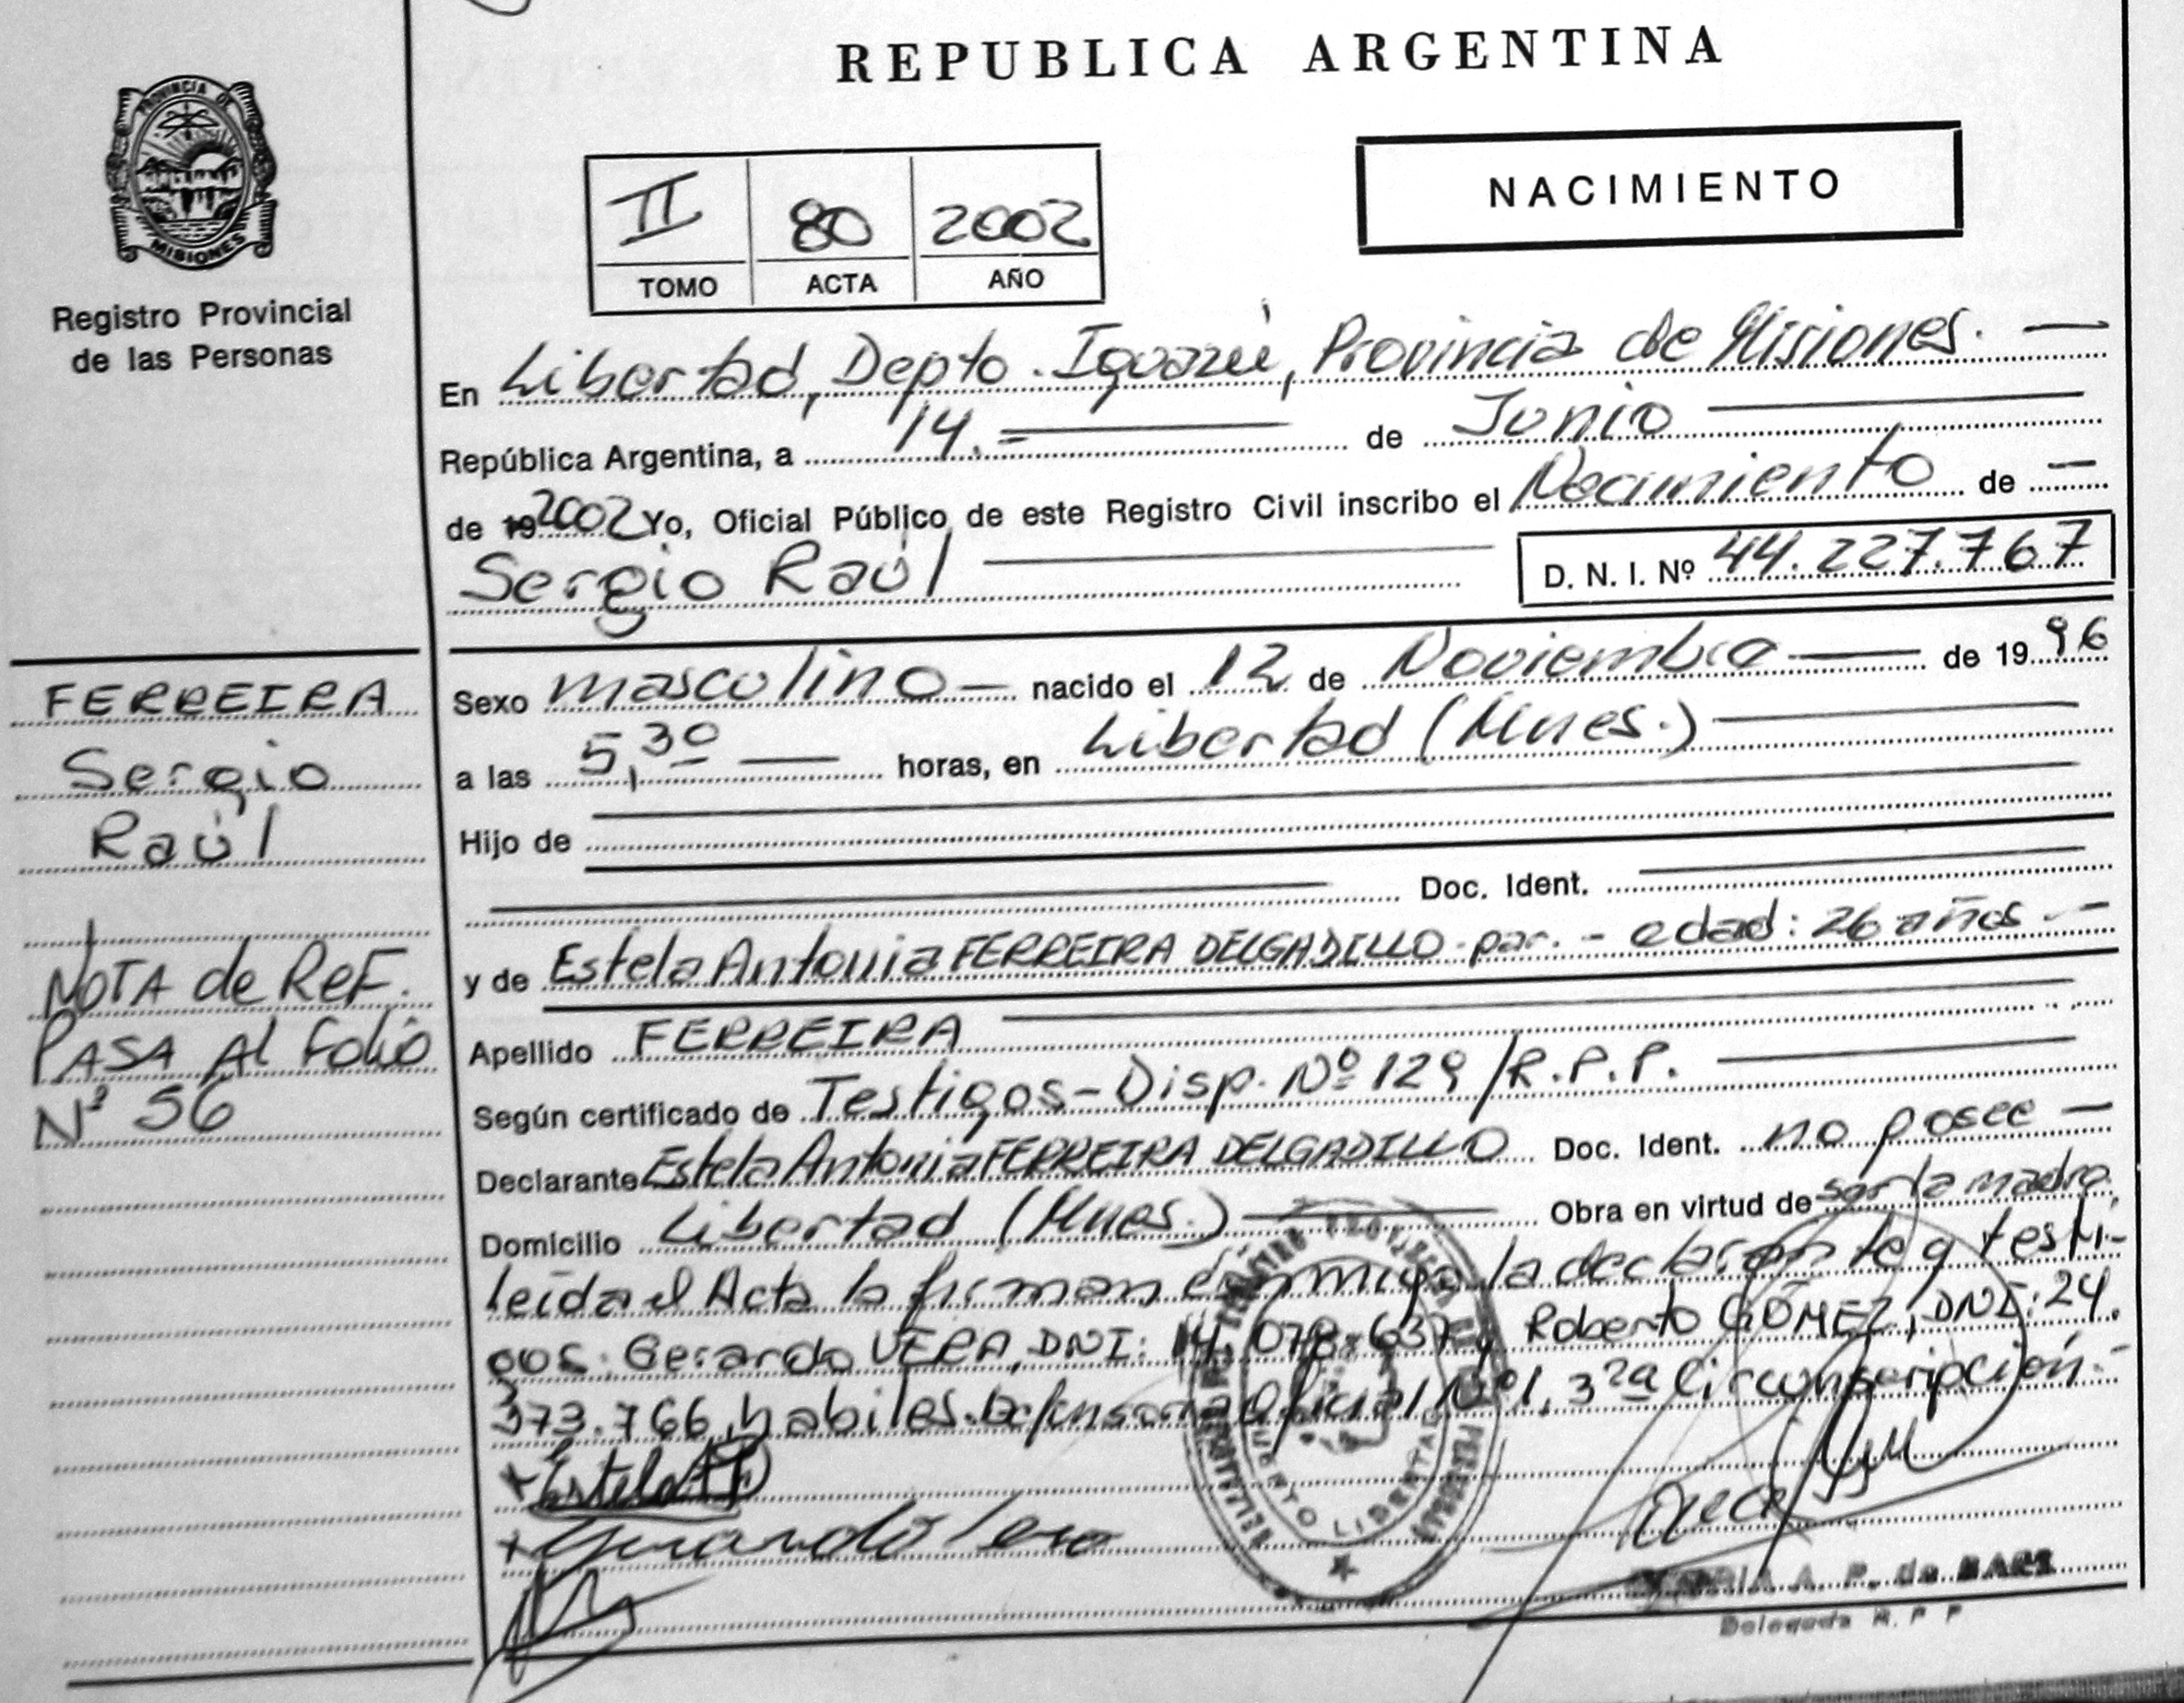 REPUBLICA ARGENTINA
PROVINCIA DE
MISIONES
Registro Provincial
de las Personas
II 80 2002
TOMO ACTA AÑO
NACIMIENTO
En Libertad, Depto. Iguazú, Provincia de Misiones.
República Argentina, a 14. de Junio
de 19 2002 Yo, Oficial Público de este Registro Civil inscribo el Nacimiento de
Sergio Raúl D. N. I. Nº 44.227.767
FERREIRA
Sergio
Raúl
NOTA de REF.
PASA Al Folio
Nº 56
Sexo masculino nacido el 12 de Noviembre de 19 96
a las 5,30 horas, en Libertad (Mnes.)
Hijo de
Doc. Ident.
y de Estela Antonia FERREIRA DELGADILLO. par. - edad: 26 años.-
Apellido FERREIRA
Según certificado de Testigos-Disp. Nº 129/R.P.P.
Declarante Estela Antonia FERREIRA DELGADILLO Doc. Ident. no posee
Domicilio Libertad (Mnes.) Obra en virtud de ser la madre,
leída el Acta la firman conmigo la declarante y testi-
gos: Gerardo VERA, DNI: 14.078.637 y Roberto GÓMEZ, DNI: 24.
373.766, habiles. Defensoria Oficial Nº 1, 3ra Circunscripción.-
Estela
Gerardo Vera
LIBERTAD
A. P. de
Delegada R. P. P